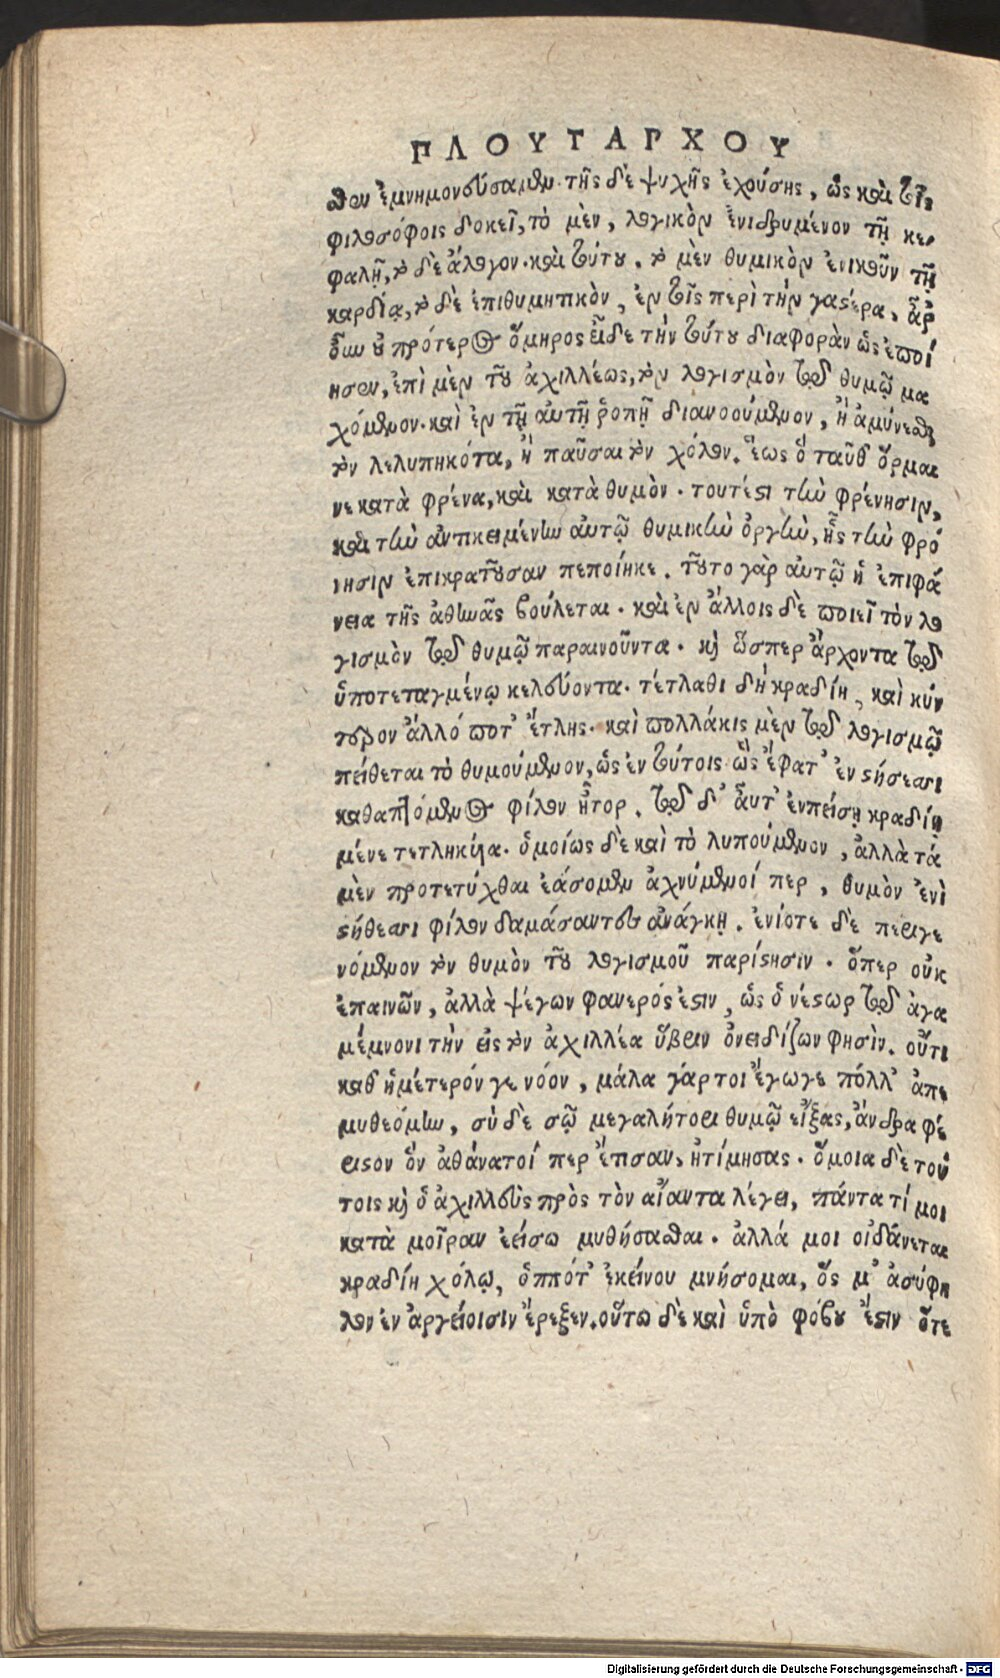 ΠΛΟΥΤΑΡΧΟΥ
θεν ἐμνημονεύσαμεν. τῆς δὲ ψυχῆς ἐχούσης, ὡς καὶ τοῖς
φιλοσόφοις δοκεῖ, τὸ μὲν, λογικὸν ἐνιδρυμένον τῇ κε-
φαλῇ, τὸ δὲ ἄλογον. καὶ τούτου. τὸ μὲν θυμικὸν ἐνικοῦν τῇ
καρδίᾳ, τὸ δὲ ἐπιθυμητικὸν, ἐν τοῖς περὶ τὴν γαστέρα, ἆρ
ὅυω οὐ πρότερος ὅμηρος εἶδε τὴν τούτου διαφορὰν ὡς ἐποί
ησεν, ἐπὶ μὲν τοῦ ἀχιλλέως, τὸν λογισμὸν τῷ θυμῷ μα
χόμενον. καὶ ἐν τῇ αὐτῇ ῥοπῇ διανοούμενον, ἢ ἀμύνεσθαι
τὸν λελυπηκότα, ἢ παῦσαι τὸν χόλον. ἕως ὁ ταῦθ ὅρμαι
νε κατὰ φρένα, καὶ κατὰ θυμὸν. τουτέστι τὴν φρένησιν,
καὶ τὴν ἀντικειμένην αὐτῷ θυμικὴν ὀργὴν, ἧς τὴν φρό
νησιν ἐπικρατοῦσαν πεποίηκε. τοῦτο γὰρ αὐτῷ ἡ ἐπιφά
νεια τῆς ἀθηνᾶς βούλεται. καὶ ἐν ἄλλοις δὲ ποιεῖ τὸν λο
γισμὸν τῷ θυμῷ παραινοῦντα. καὶ ὥσπερ ἄρχοντα τῷ
ὑποτεταγμένῳ κελεύοντα. τέτλαθι δὴ κραδίη, καὶ κύν
τερον ἄλλό ποτ' ἔτλης. καὶ πολλάκις μὲν τῷ λογισμῷ
πείθεται τὸ θυμούμενον, ὡς ἐν τούτοις ὣς ἔφατ' ἐν στήσεσσι
καθαπτόμενος φίλον ἦτορ. τῷ δ' αὖτ' ἐνπείσῃ κραδίη
μένε τετληκῦια. ὁμοίως δὲ καὶ τὸ λυπούμενον, ἀλλὰ τὰ
μὲν προτετύχθαι ἐάσομεν ἀχνύμενοί περ, θυμὸν ἐνὶ
στήθεσσι φίλον δαμάσαντες ἀνάγκῃ. ἐνίοτε δὲ περιγε
νόμενον τὸν θυμὸν τοῦ λογισμοῦ παρίστησιν. ὅπερ οὐκ
ἐπαινῶν, ἀλλὰ ψέγων φανερός ἐστιν, ὡς ὁ νέστωρ τῷ ἀγα
μέμνονι τὴν εἰς τὸν ἀχιλλέα ὕβριν ὀνειδίζων φησὶν. οὔτι
καθ ἡμέτερόν γε νόον, μάλα γάρτοι ἔγωγε πόλλ' ἀπε
μυθεόμην, σὺ δὲ σῷ μεγαλήτορι θυμῷ εἴξας, ἄνδρα φέ
ριστον ὃν ἀθάνατοί περ ἔτισαν, ἠτίμησας. ὅμοια δὲ τού
τοις καὶ ὁ ἀχιλλεὺς πρὸς τὸν αἴαντα λέγει, πάντα τί μοι
κατὰ μοῖραν ἐείσω μυθήσασθαι. ἀλλά μοι οἰδάνεται
κραδίη χόλῳ, ὁππότ' ἐκείνου μνήσομαι, ὅς μ' ἀσύφη
λον ἐν ἀργείοισιν ἔρεξεν. οὕτω δὲ καὶ ὑπὸ φόβου ἔστιν ὅτε
Digitalisierung gefördert durch die Deutsche Forschungsgemeinschaft - DFG